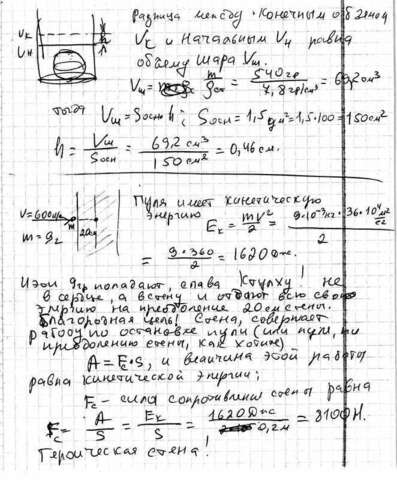 Разница между конечным объемом
Vк и начальным Vн равна
объему шара Vш.
Vк
Vн
h
Vш = m/ρст = 540гр / 7,8гр/см³ = 69,2 см³
тогда Vш = Sосн h; Sосн = 1,5 дм² = 1,5·100 = 150 см²
h = Vш / Sосн = 69,2 см³ / 150 см² = 0,46 см.
Пуля имеет кинетическую
энергию Eк = mv²/2 = 9·10⁻³кг·36·10⁴ м²/с² / 2
V=600м/с
m = 9г
20см
= 9·360 / 2 = 1620 Дж.
И эти 9гр попадают, слава Ктулху! не
в сердце, а в стену и отдают всю свою
энергию на преодоление 20см стены.
Благородная цель! Стена, совершает
работу по остановке пули (или пуля, по
преодолению стены, как хотим)
A = Fc·S, и величина этой работы
равна кинетической энергии;
Fc – сила сопротивления стены равна
Fc = A/S = Eк/S = 1620 Дж / 0,2м = 8100 Н.
Героическая стена!